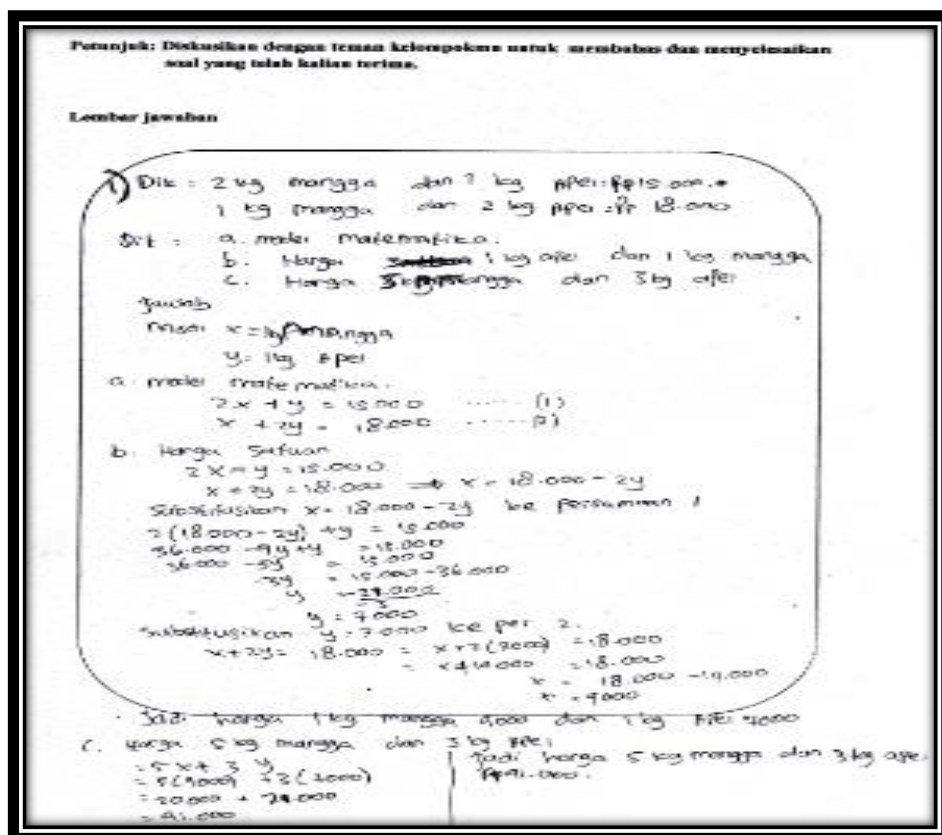 Petunjuk: Diskusikan dengan teman kelompokmu untuk membahas dan menyelesaikan
soal yang telah kalian terima.
Lembar jawaban
1) Dik : 2 kg mangga dan kg apel = Rp 15.000
1 kg mangga dan 2 kg apel = Rp 18.000
Dit : a. model matematika.
b. Harga 1 kg apel dan 1 kg mangga
c. Harga mangga dan 3 kg apel
Jawab
misal x = mangga
y = 1 kg apel
a. model matematika.
2x + y = 15.000 ...... (1)
x + 2y = 18.000 ...... (2)
b. Harga Satuan
2x + y = 15.000
x + 2y = 18.000 → x = 18.000 - 2y
Substitusikan x = 18.000 - 2y ke persamaan 1
2(18.000 - 2y) + y = 15.000
36.000 - 4y + y = 15.000
36.000 = 15.000
-3y = 15.000 - 36.000
y =
y = 7000
Substitusikan y = 7.000 ke per 2.
x + 2y = 18.000 = x + 2(7000) = 18.000
= x + 14.000 = 18.000
x = 18.000 - 14.000
x = 4000
Jadi harga 1 kg mangga 4000 dan 1 kg apel 7000
c. Harga 5 kg mangga dan 3 kg apel
= 5x + 3y
= 5(4000) + 3(7000)
= 20.000 + 21.000
= 41.000
Jadi harga 5 kg mangga dan 3 kg apel
Rp 41.000.